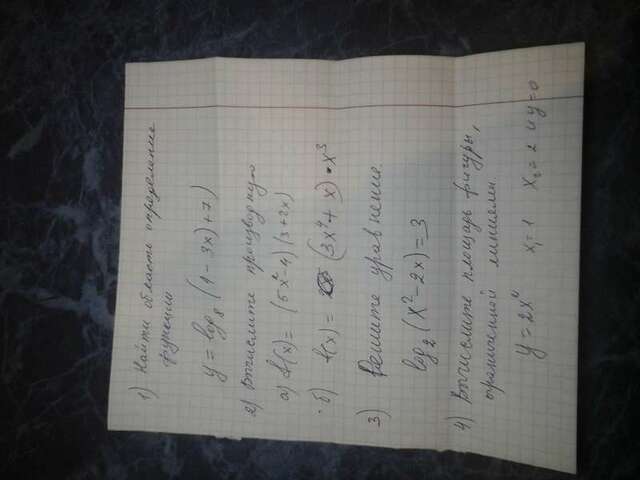 1) Найти область определение
функции
y = log₈ (1 - 3x) + 7)
2) Вычислите производную
а) f(x) = (5x² - 4) (3 + 2x)
б) f(x) = (3x⁴ + x) • x³
3) Решите уравнение.
log₂ (x² - 2x) = 3
4) Вычислите площадь фигуры,
ограниченной линиями
y = 2x⁶ x₁ = 1 x₂ = 2 и y = 0